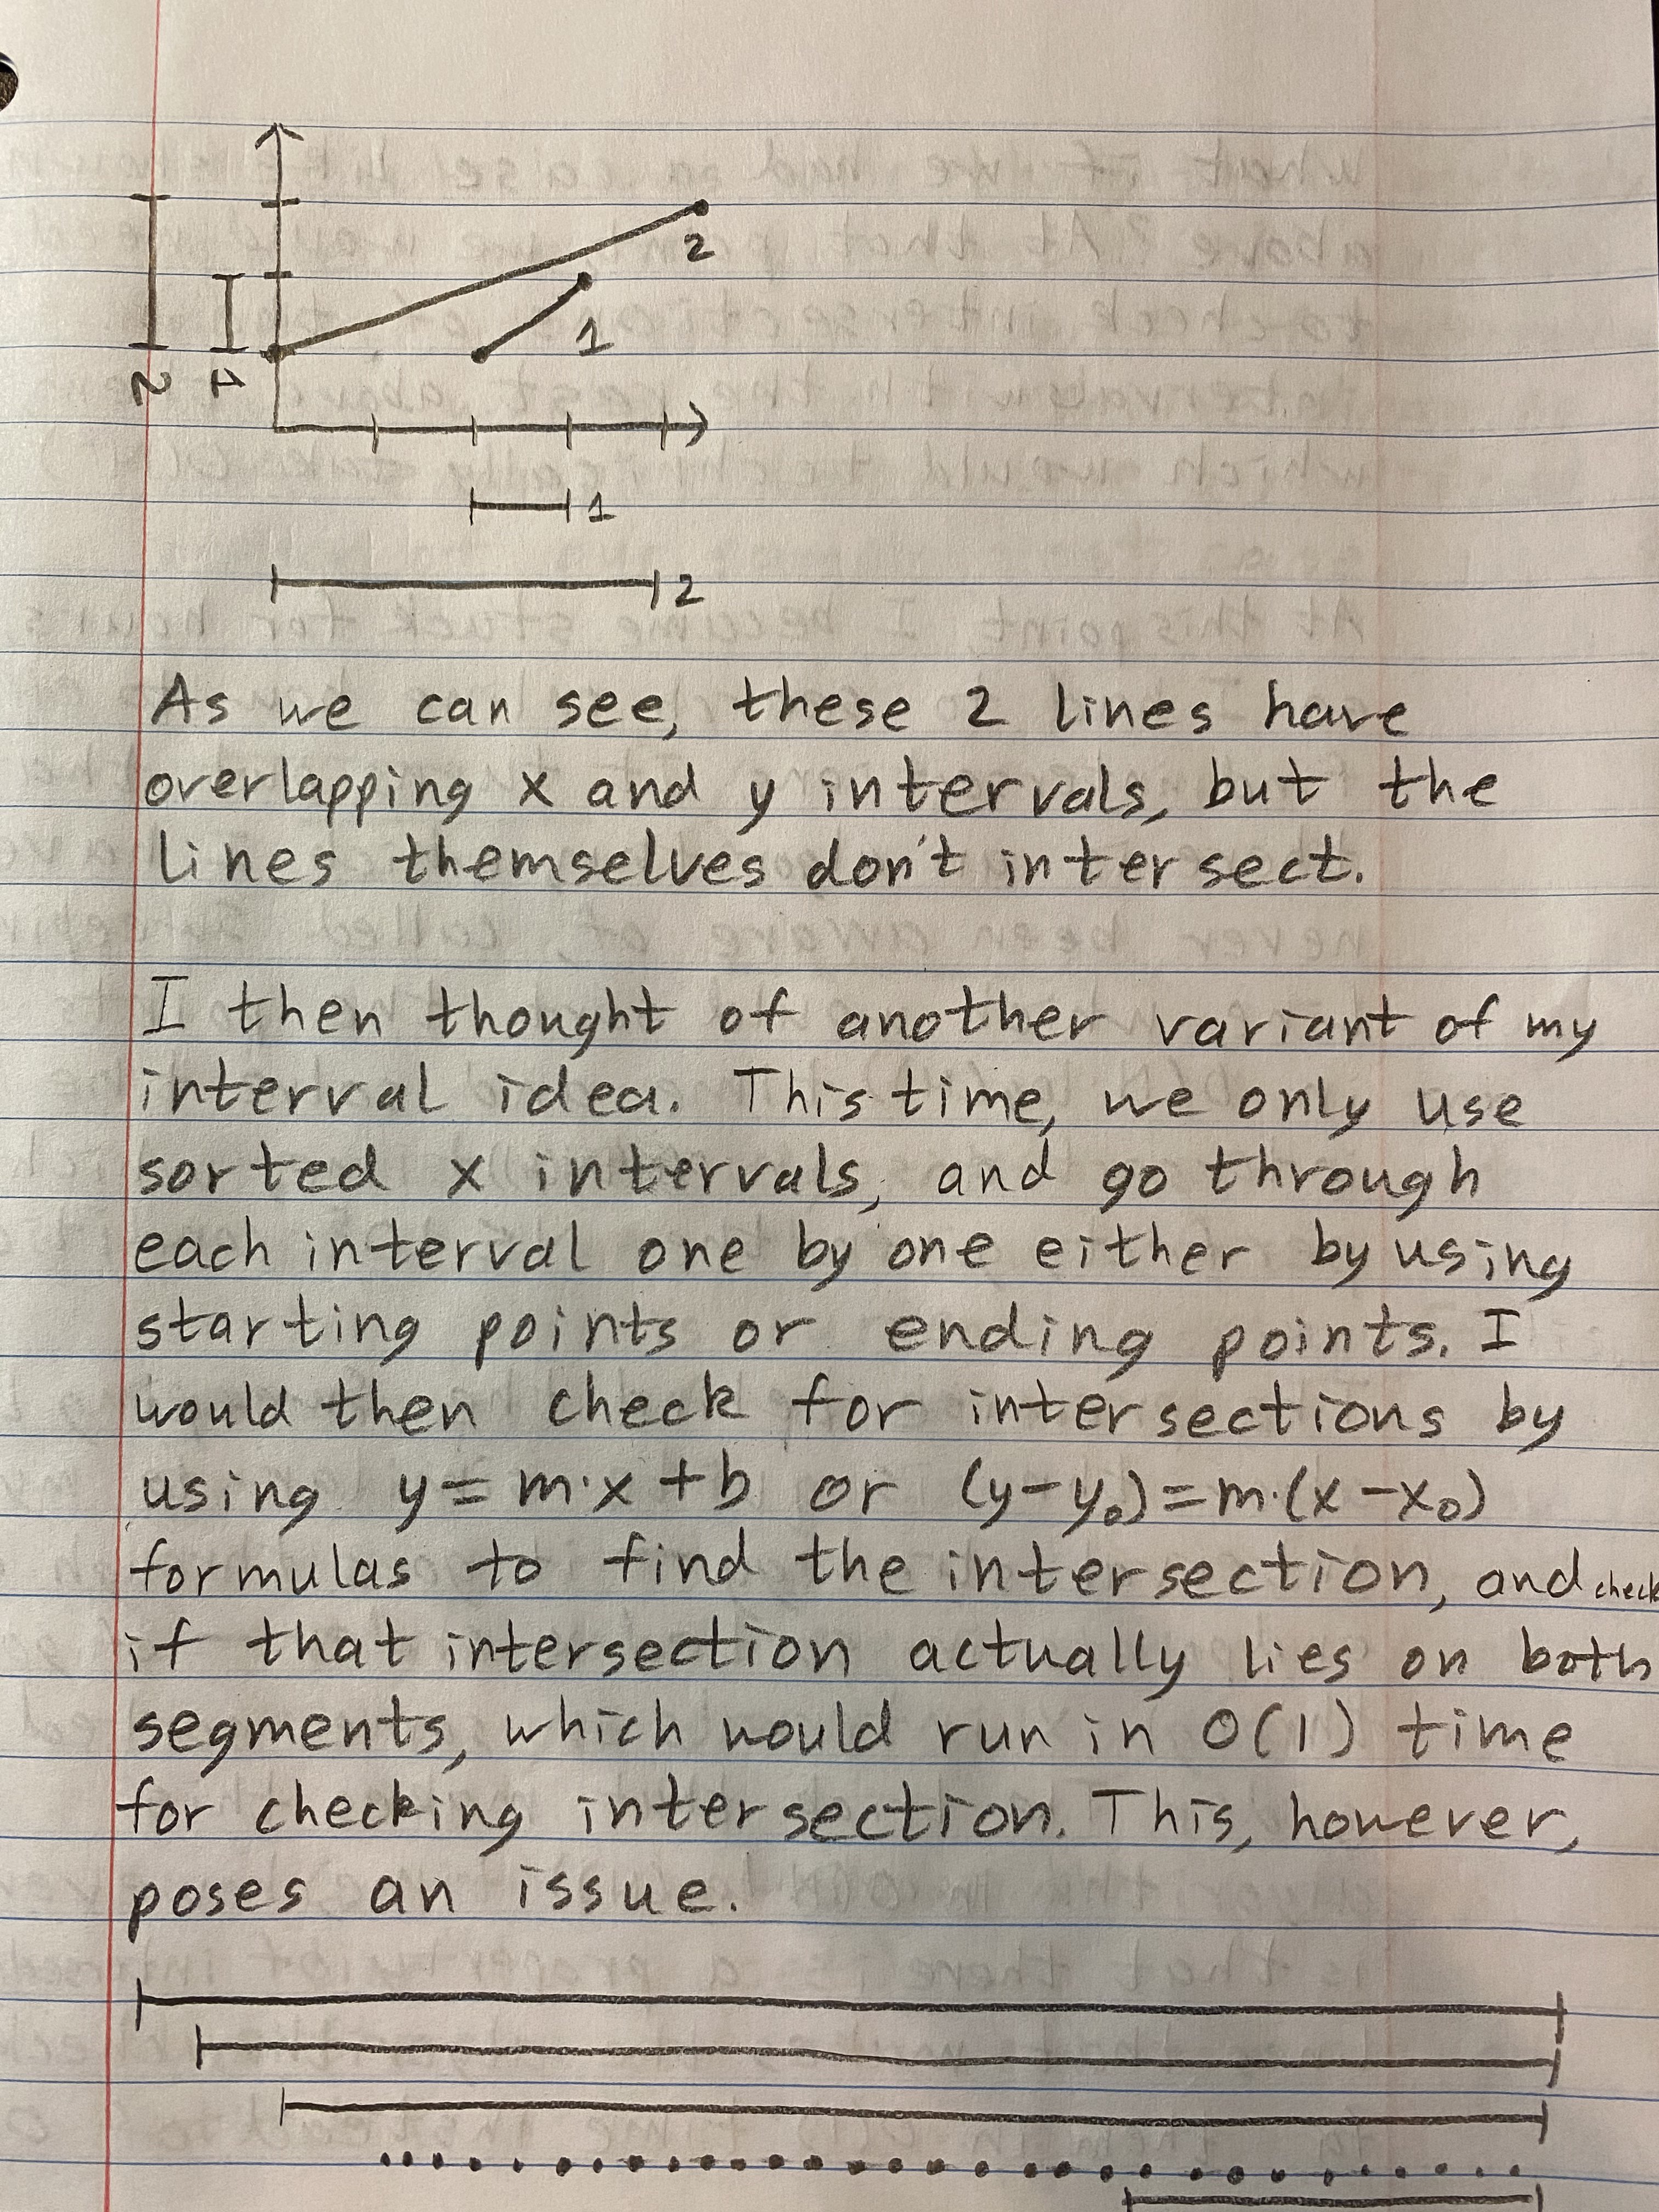 2
1
2
1
1
2
As we can see, these 2 lines have
overlapping x and y intervals, but the
lines themselves don't intersect.
I then thought of another variant of my
interval idea. This time, we only use
sorted x intervals, and go through
each interval one by one either by using
starting points or ending points. I
would then check for intersections by
using y = m·x + b or (y-y₀)=m·(x-x₀)
formulas to find the intersection, and check
if that intersection actually lies on both
segments, which would run in O(1) time
for checking intersection. This, however,
poses an issue.